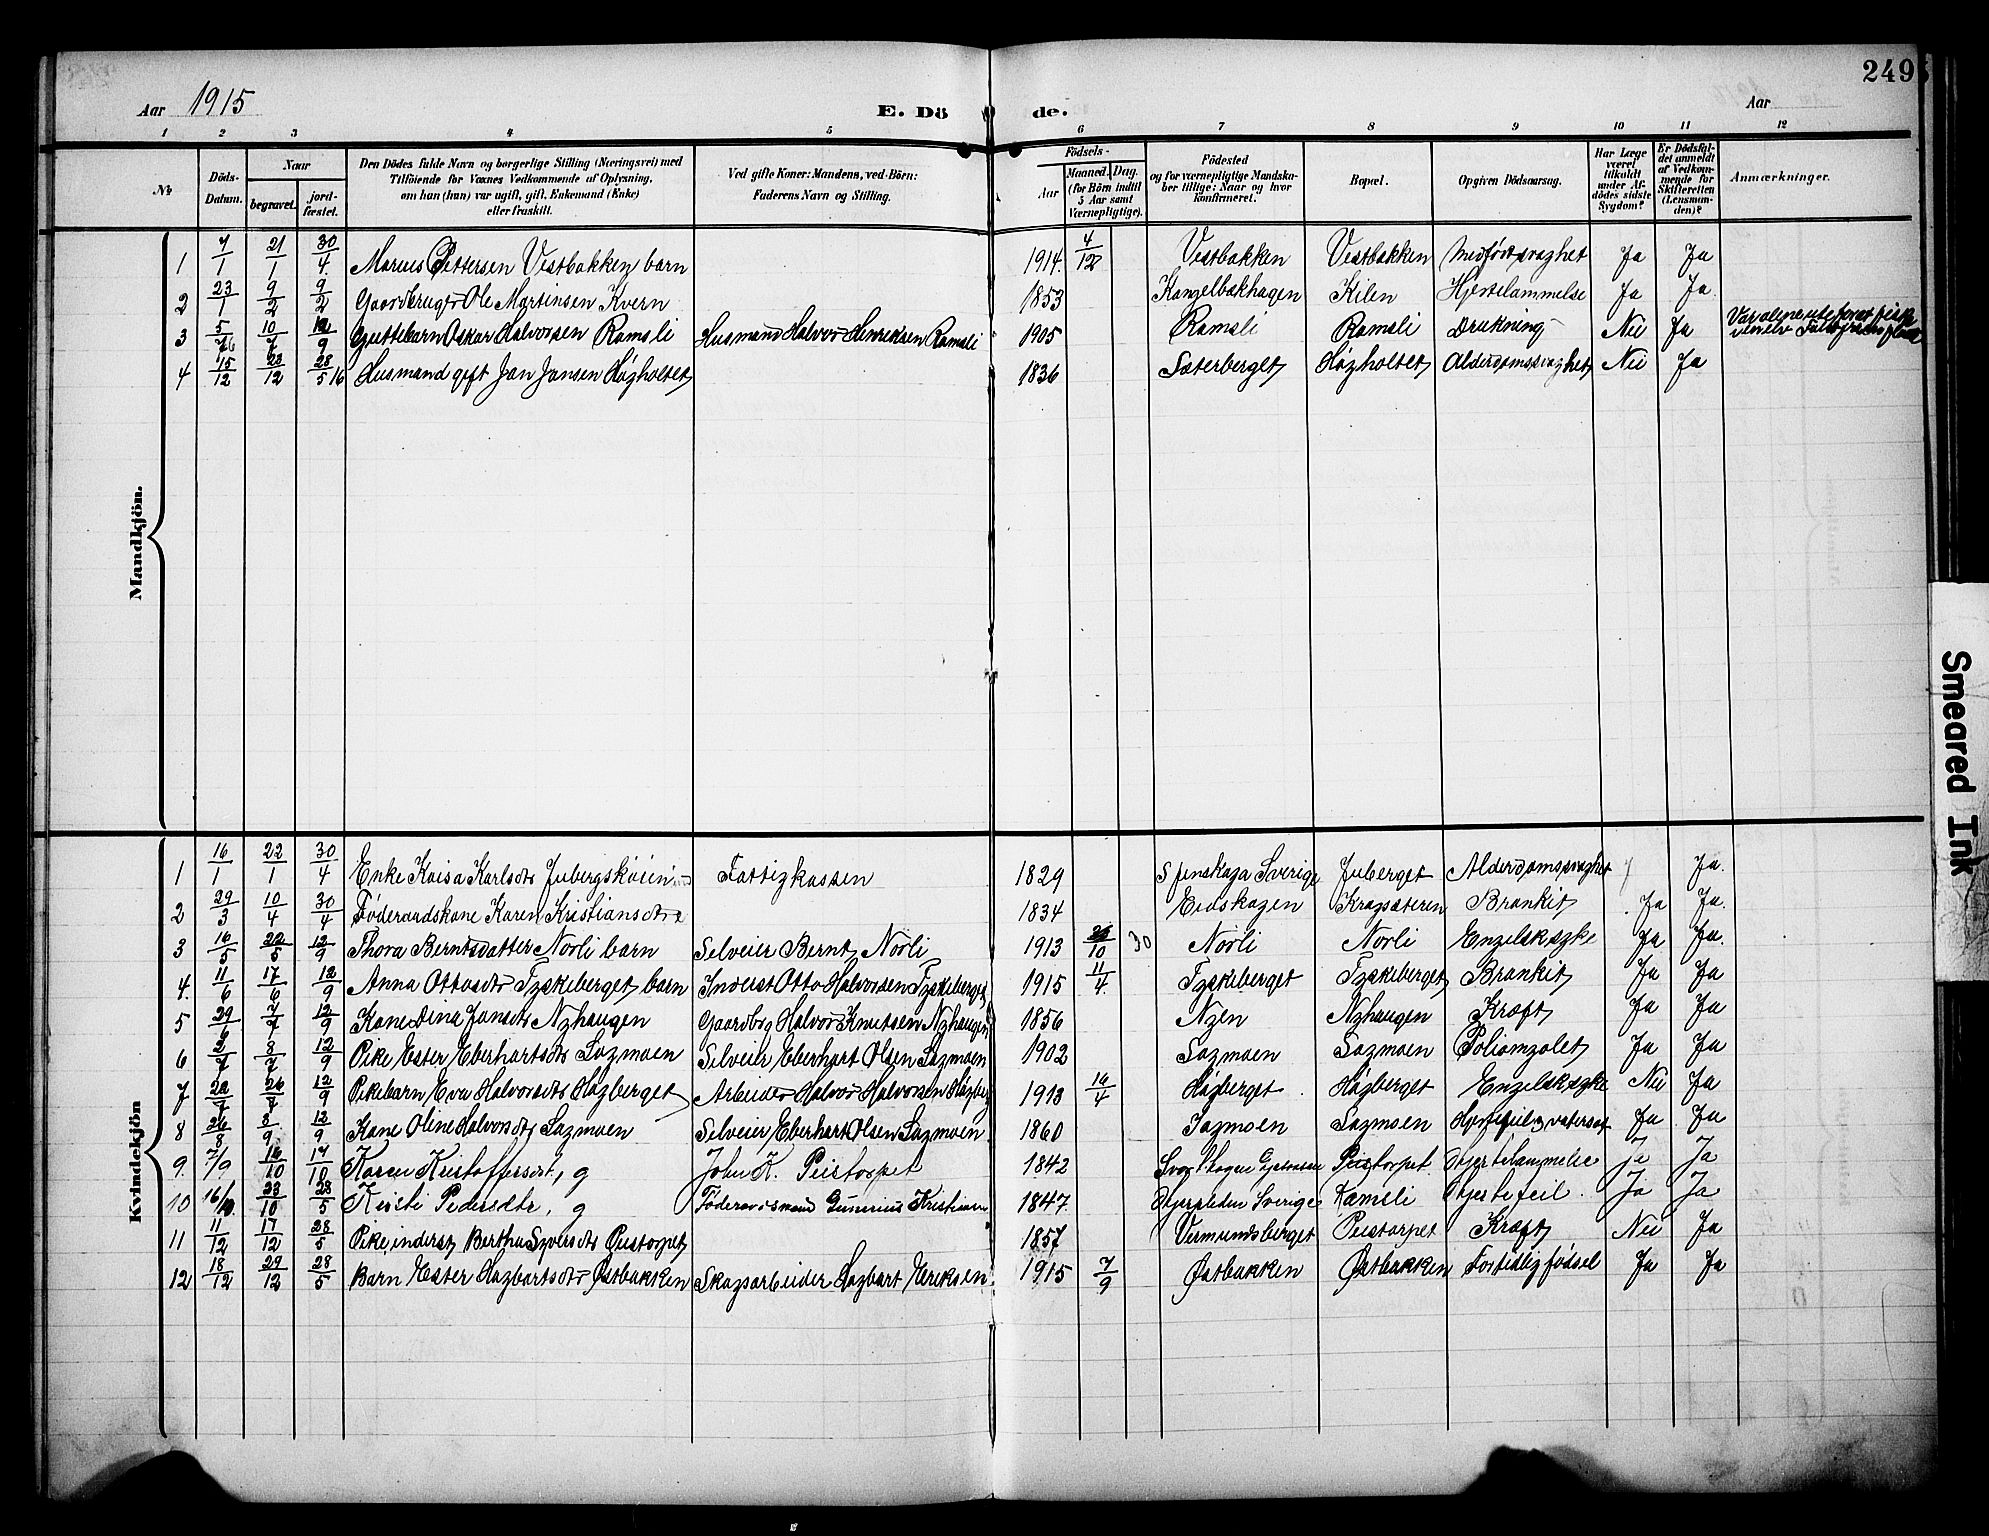 249
Aar 1915
E. Döde.
Aar
1 2 3 4 5 6 7 8 9 10 11 12
No
Döds-Datum.
Naar
begravet.
jord-fæstet.
Den Dödes fulde Navn og borgerlige Stilling (Næringsvei) med
Tilföiende for Voxnes Vedkommende af Oplysning,
om han (hun) var ugift, gift, Enkemand (Enke)
eller fraskilt.
Ved gifte Koner: Mandens, ved Börn:
Faderens Navn og Stilling.
Födsels-
Aar
Maaned. Dag.
(for Börn indtil
5 Aar samt
Værnepligtige).
Födested
og for værnepligtige Mandska-
ber tillige: Naar og hvor
konfirmeret.
Bopæl.
Opgiven Dödsaarsag.
Har Læge
været
tilkaldt
under Af-
dödes sidste
Sygdom?
Er Dödsfal-
det anmeldt
af Vedkom-
mende for
Skifteretten
(Lensman-
den)?
Anmærkninger.
Mandkjön.
1 7/1 21/1 30/4 Marius Pettersen Vestbakken barn 1914 4/12 Vestbakken Vestbakken Medfödt svaghet Ja Ja
2 23/1 9/2 9/2 Gaardbruger Ole Martinsen Kvern 1853 Kilen Hjertelammelse Ja Ja
3 5/7 10/7 12/9 Guttebarn Oskar Halvorsen Ramsli Husmand Halvor Henriksen Ramsli 1905 Ramsli Ramsli Drukning Nei Ja
4 15/12 23/12 28/5 16 Husmand gift Jan Jansen Høgholtet 1836 Sæterberget Høgholtet Alderdomssvaghet Nei Ja
Kvindekjön
1 16/1 22/1 30/4 Enke Kaisa Karlsdtr Fattigkassen 1829 Sverige Juberget Alderdomssvaghet Ja
2 29/3 10/4 30/4 Føderaadskone Karen Kristiansdtr 1834 Eidskogen Kragsæteren Bronkit Ja Ja
3 16/5 22/5 12/9 Thora Berntsdatter Norli barn Selveier Bernt Norli 1913 /10 30 Norli Norli Engelsk syke Ja Ja
4. 11/6 17/6 12/9 Anna Ottosdtr Tyskeberget barn Inderst Otto Halvorsen Tyskeberget 1915 11/4 Tyskeberget Tyskeberget Bronkit Ja Ja
5 29/6 7/7 12/9 Kone Dina Jansdtr Nyhaugen Gaardbrg Halvor Knutsen Nyhaugen 1856 Nyen Nyhaugen Kræft Ja Ja
6 2/7 8/7 12/9 Pike Ester Eberhartsdtr Sagmoen Selveier Eberhart Olsen Sagmoen 1902 Sagmoen Sagmoen Ja Ja
7 22/7 26/7 12/9 Pikebarn Eva Halvorsdtr Høgberget Arbeider Halvor Halvorsen Høgberg 1913 16/4 Høgberget Høgberget Engelsk syke Nei Ja
8 26/8 3/9 12/9 Kone Oline Halvorsdtr Sagmoen Selveier Eberhart Olsen Sagmoen 1860 Sagmoen Sagmoen Hjertefeil, vatersot Ja Ja
9. 7/9 16/10 17/10 Karen Kristoffersdt, g John K. Peistorpet 1842 Peistorpet Hjertelammelse Ja Ja
10 16/10 23/10 28/5 Kristi Pedersdtr, g Föderaadsmand Gunerius Kristiansen 1847. Sverige Ramsli Hjertefeil. Ja Ja
11 11/12 17/12 28/5 Pike, inderst Bertha Syversdtr Peistorpet 1857 Vermundsberget Peistorpet Kræft Nei Ja
12 18/12 29/12 28/5 Barn Ester Hagbartsdtr Østbakken Skogsarbeider Hagbart Eriksen 1915 7/9 Østbakken Østbakken Fortidlig födsel Ja Ja
Smeared Ink